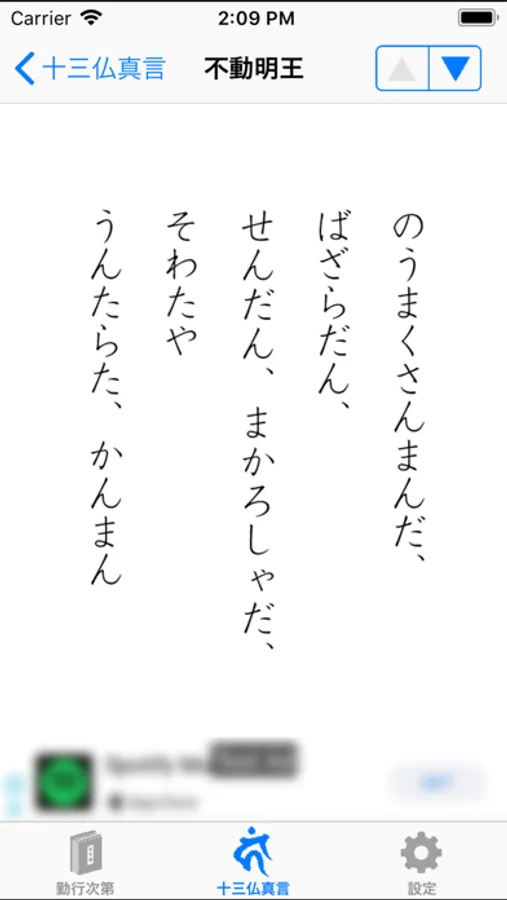 Carrier
2:09 PM
十三仏真言
不動明王
のうまくさんまんだ、
ばざらだん、
せんだん、まかろしゃだ、
そわたや
うんたらた、かんまん
勤行次第
十三仏真言
設定